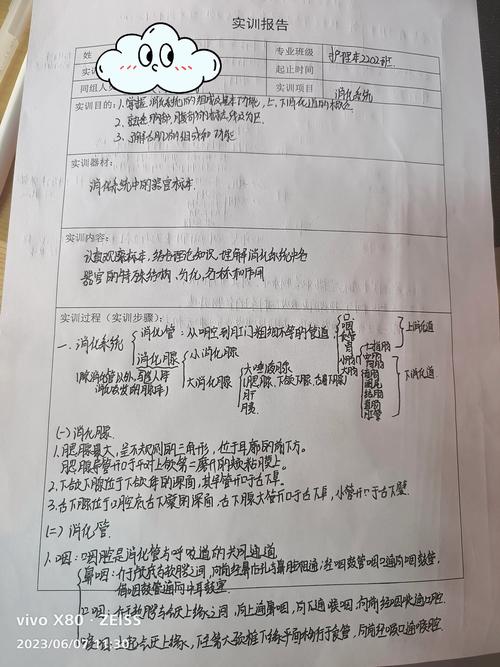 实训报告
姓
专业班级 护理本2202班
实
起止时间
同组人
实训项目 消化系统
实训目的：1、掌握消化系统的组成及基本功能，上、下消化道的概念
2、熟悉胸部、腹部的标志线及分区
3、了解各脏的组成和功能
实训器材：
消化系统中的器官标本
实训内容：
认真观察标本，结合理论知识，理解消化系统中各
器官的特殊结构，分化，名称和作用
实训过程（实训步骤）：
一、消化系统
消化管：从咽空到肛门粗细不等的管道
口 咽 食管 胃 小肠 大肠
十二指肠 空肠 回肠 盲肠 阑尾 结肠 直肠 肛管
上消化道
下消化道
消化腺 小消化腺
(除消化管以外，
消化食物的腺体)
大消化腺 大唾液腺
(腮腺、下颌下腺、舌下腺)
肝
胰
(一)消化腺
1.腮腺最大，呈不规则的三角形，位于耳廓的前下方。
腮腺导管开口于平对上颌第二磨牙的颊粘膜上。
2.下颌下腺位于下颌体的深面，其导管开口于舌下阜。
3.舌下腺位于口腔底舌下襞的深面，舌下腺大管开口于舌下阜，小管开口于舌下襞
(二)消化管
1.咽：口咽腔是消化管与呼吸道的共同通道
鼻咽：介于颅底与软腭之间，向前经鼻后孔与鼻腔相通，经咽鼓管咽口通向咽鼓管，
借咽鼓管通向中耳鼓室
口咽：介于软腭与会厌上缘之间，向上通鼻咽，向下通喉咽，向前经咽峡通口腔
喉咽：上起会厌上缘，下至第六颈椎下缘平面移行于食管，向前经喉口通喉腔
vivo X80 · ZEISS